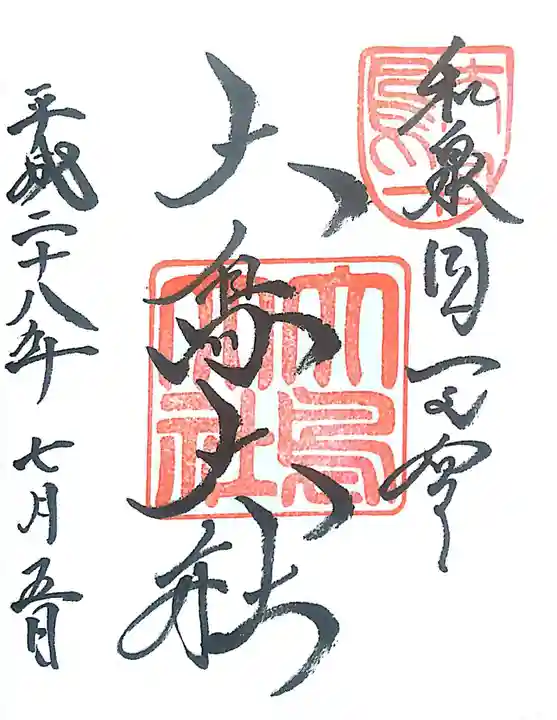 和泉國一之宮
大鳥大社
平成二十八年 七月五日
大鳥大社